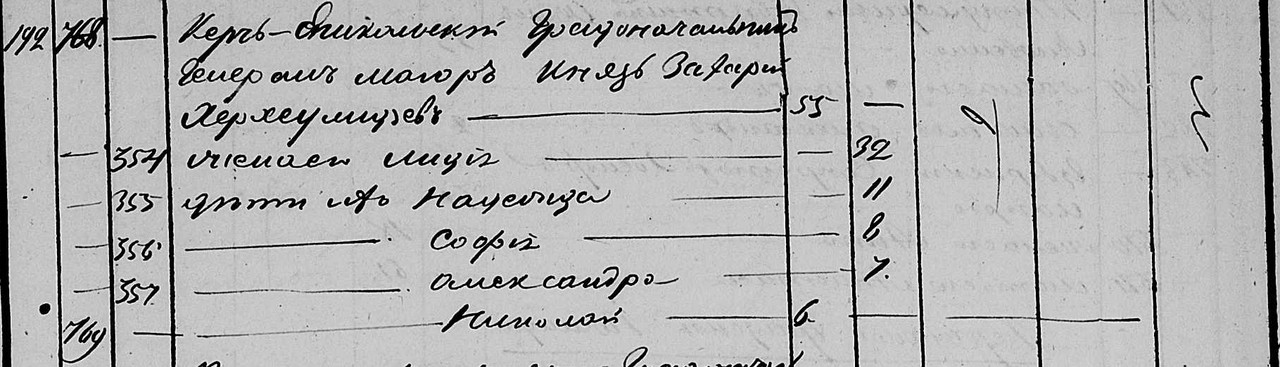 192 768 — Керчь-Еникольский Градоначальникъ
Генералъ маiоръ Князь Захарiй
Херхеулидзевъ — 55 —
— 354 жена его — — 32
— 355 дети ихъ — — 11
— 356 — Софiя — 8
— 357 — Александра — 7.
769 — Николай — 6 — —